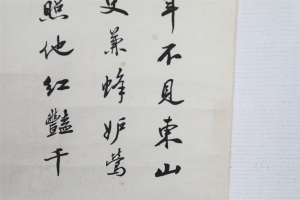 年不見東山
更兼蜂妒鶯
照他紅豔千